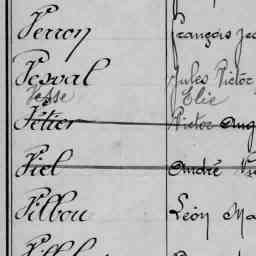 Perron François
Pesval Jules Victor
Pesse Elie
Pétier Victor Aug
Piel André
Pilbou Léon Ma